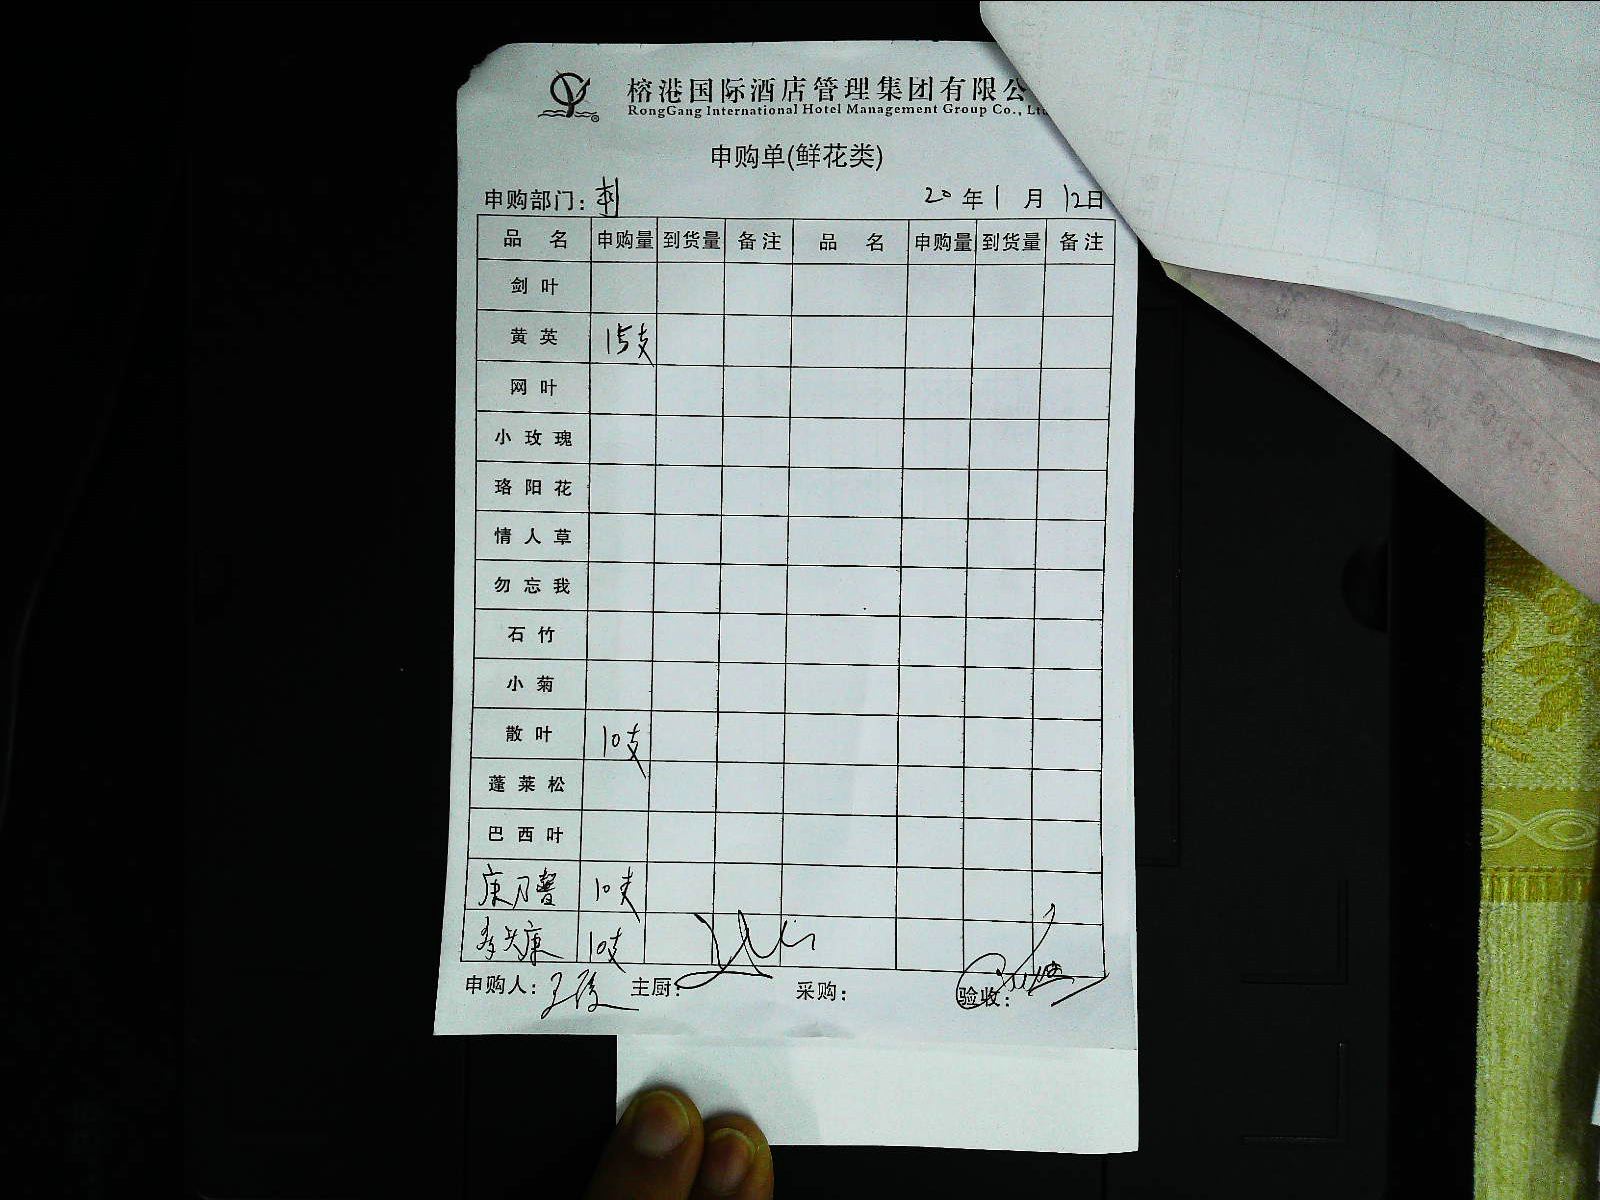 榕港国际酒店管理集团有限公
RongGang International Hotel Management Group Co., Lt
申购单(鲜花类)
申购部门: 刺 20年1月12日
品名 申购量 到货量 备注 品名 申购量 到货量 备注
剑叶
黄英 15支
网叶
小玫瑰
珞阳花
情人草
勿忘我
石竹
小菊
散叶 10支
蓬莱松
巴西叶
康乃馨 10支
康 10支
申购人: 主厨: 采购: 验收: